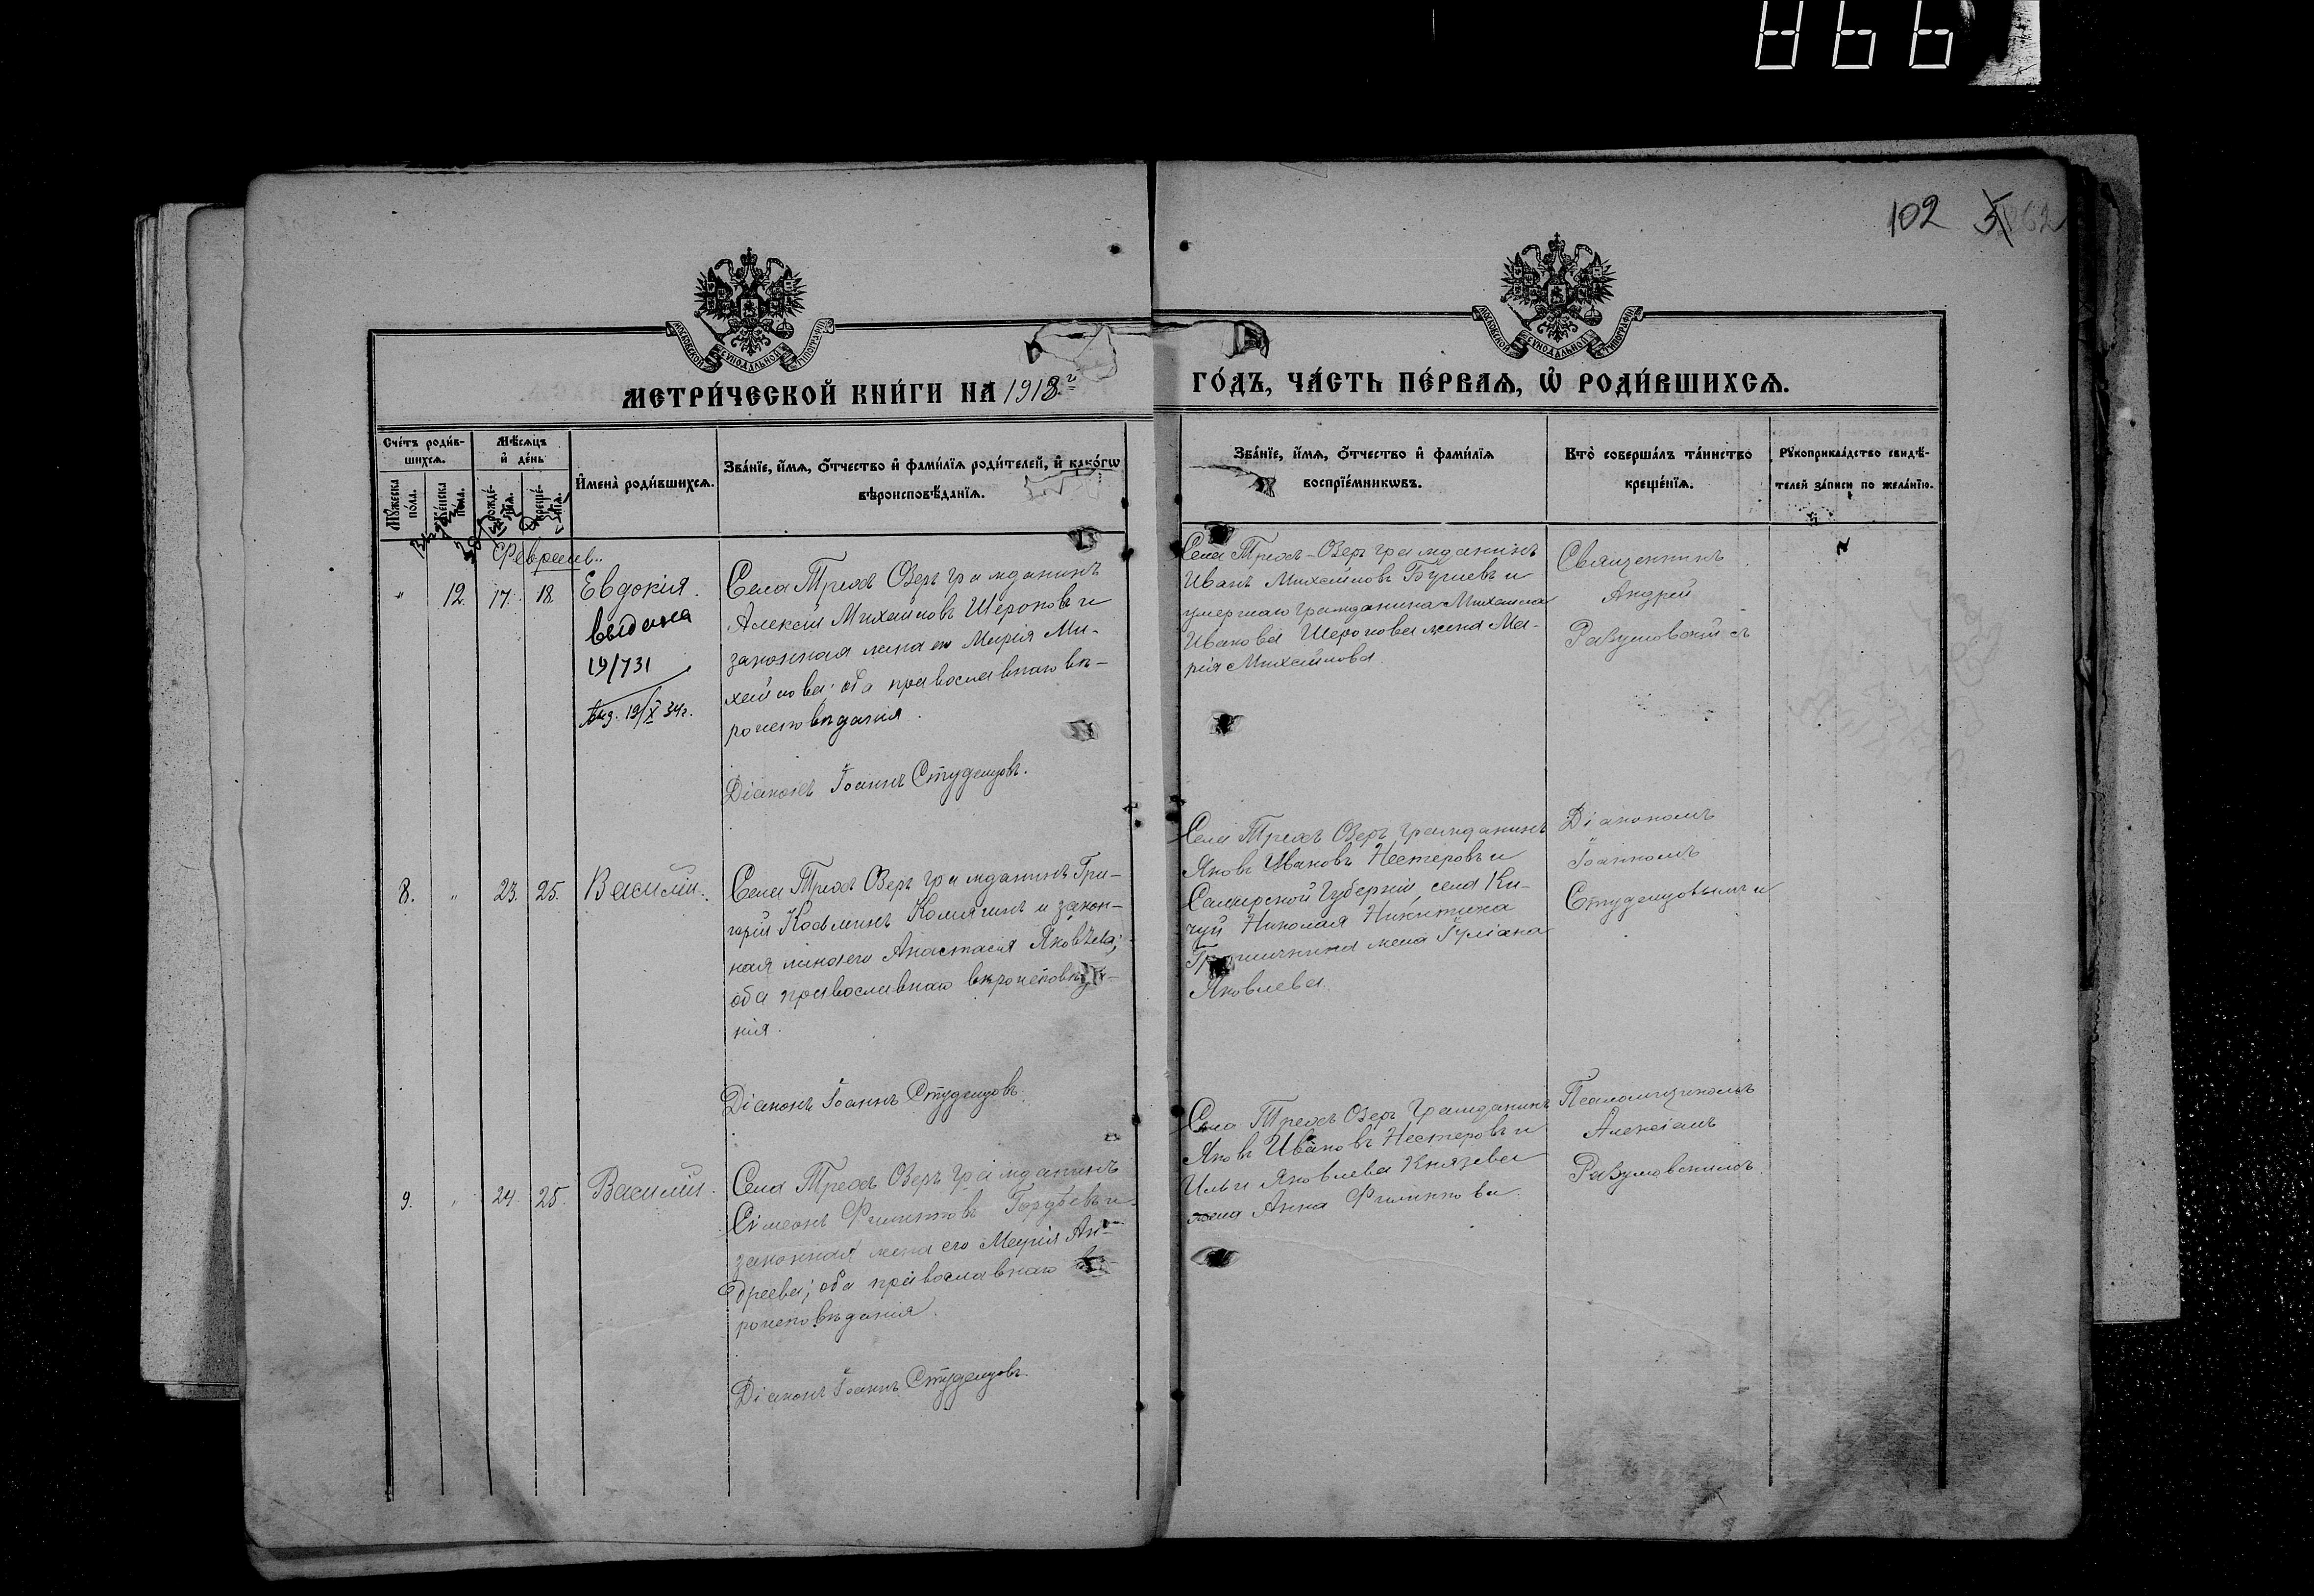 102 5 262
МОСКОВСКОЙ СѴНОДАЛЬНОЙ ТИПОГРАФІИ
МОСКОВСКОЙ СѴНОДАЛЬНОЙ ТИПОГРАФІИ
МЕТРИ́ЧЕСКОЙ КНИ́ГИ НА 1918 г.
ГО́ДЪ, ЧА́СТЬ ПЕ́РВАѦ, Ѡ҆ РОДИ́ВШИХСѦ.
Сче́тъ роди́в-
шихсѧ.
Мѣ́сѧцъ
и҆ де́нь
Мꙋ́жеска по́ла.
Же́нска по́ла.
рожде́-нїѧ.
креще́-нїѧ.
И҆мена̀ роди́вшихсѧ.
Зва́нїе, и҆́мѧ, ѻ҆́тчество и҆ фами́лїѧ роди́телей, и҆ како́гѡ
вѣроисповѣ́данїѧ.
Зва́нїе, и҆́мѧ, ѻ҆́тчество и҆ фами́лїѧ
воспрїе́мникѡвъ.
Кто̀ соверша́лъ та́инство
креще́нїѧ.
Рꙋкоприкла́дство свидѣ́-
телей за́писи по жела́нїю.
Февраль..
" 12. 17. 18. Евдокія.
выдана
19/731
выд. 19/X 34г.
Села Трехъ Озеръ гражданинъ
Алексій Михайловъ Шероновъ и
законная жена его Марія Ми-
хайлова; оба православнаго вѣ-
роисповѣданія.
Діаконъ Іоаннъ Студенцовъ.
Села Трехъ-Озеръ гражданинъ
Иванъ Михайловъ Бушевъ и
умершаго гражданина Михаила
Иванова Шеронова жена Ма-
рія Михайлова.
Священникъ
Андрей
Разумовскій съ
8. " 23. 25. Василій.
Села Трехъ Озеръ гражданинъ Гри-
горій Козьминъ Комягинъ и закон-
ная жена его Анастасія Яковлева;
оба православнаго вѣроисповѣда-
нія.
Діаконъ Іоаннъ Студенцовъ.
Села Трехъ Озеръ гражданинъ
Яковъ Ивановъ Нестеровъ и
Самарской Губерніи, села Ки-
чуй Николая Никитина
жена Іуліана
Яковлева.
Діакономъ
Іоанномъ
Студенцовымъ и
9. " 24. 25. Василій.
Села Трехъ Озеръ гражданинъ
Сѵмеонъ Филипповъ Гордѣевъ и
законная жена его Марія Ан-
дреева; оба православнаго вѣ-
роисповѣданія.
Діаконъ Іоаннъ Студенцовъ.
Села Трехъ Озеръ Гражданинъ
Яковъ Ивановъ Нестеровъ и
Ильи Яковлева Князева
жена Анна Филиппова.
Псаломщикомъ
Алексіемъ
Разумовскимъ.